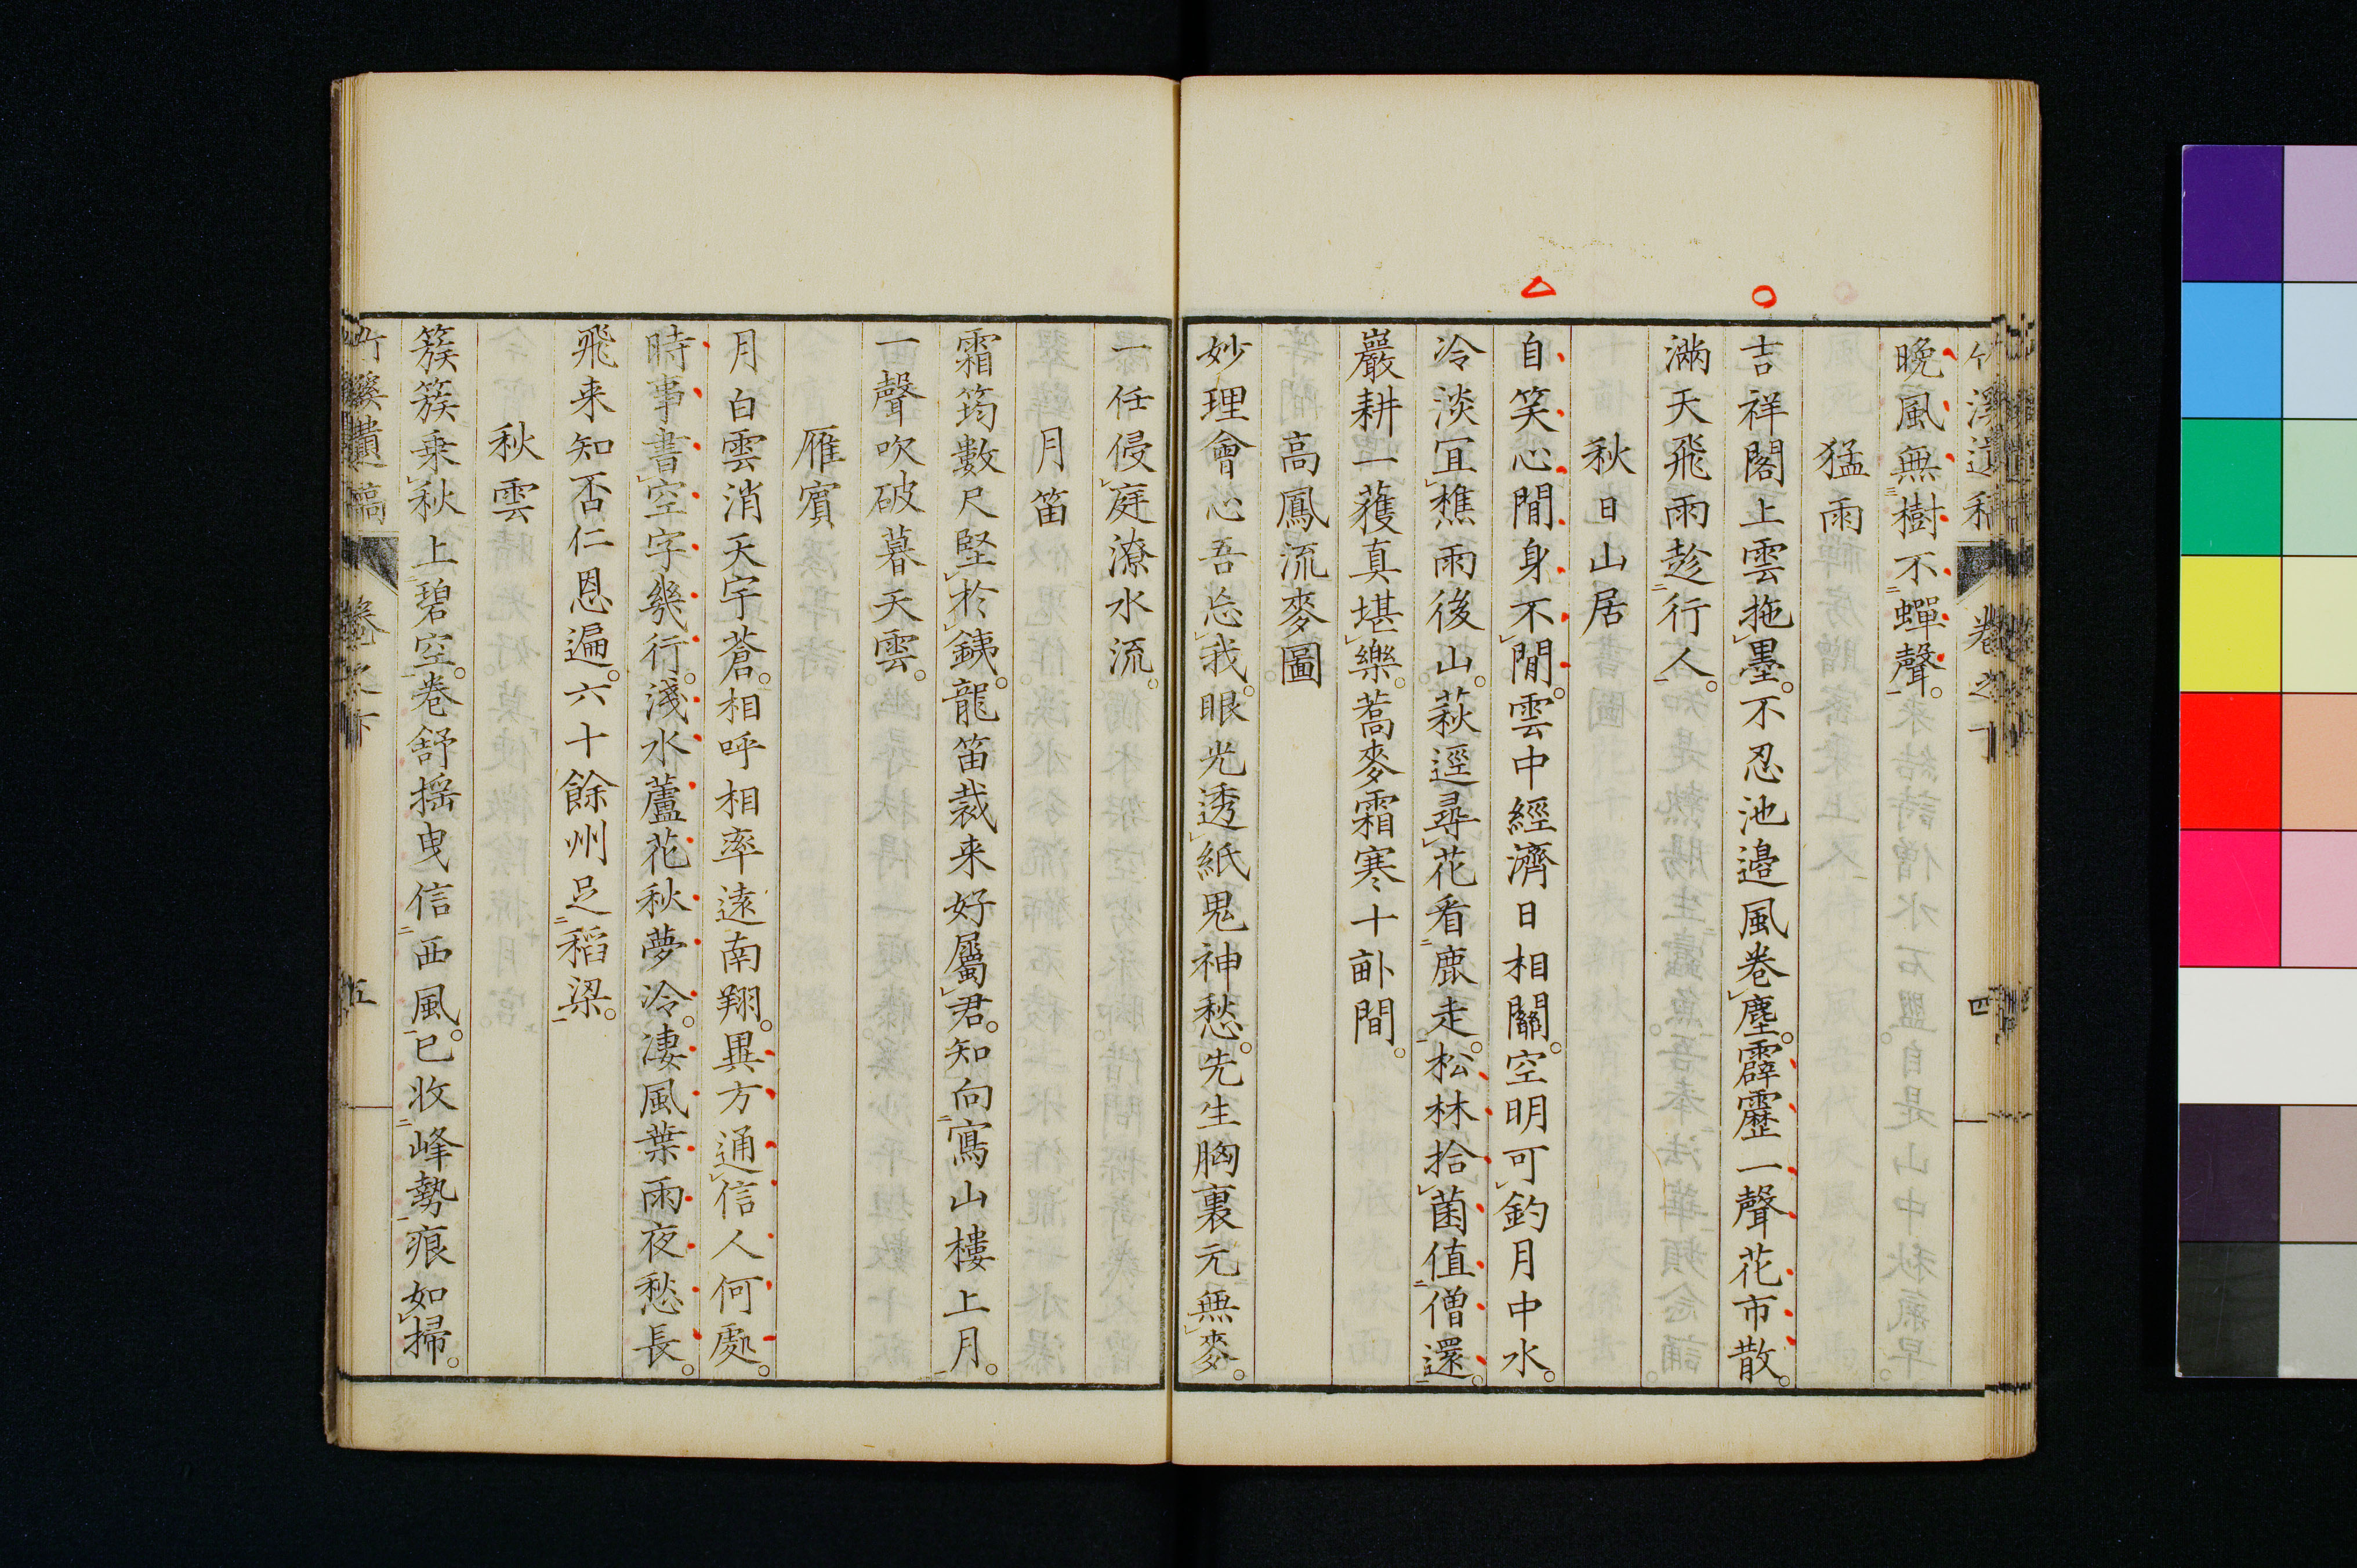 竹溪遺稿 卷之下 四
晚風無樹不蟬聲。
猛雨
吉祥閣上雲拖墨。不忍池邉風卷塵。霹靂一聲花市散。
滿天飛雨趁行人。
秋日山居
自笑心閒身不閒。雲中經濟日相關。空明可釣月中水。
冷淡冝樵雨後山。萩逕尋花看鹿走。松林拾菌值僧還。
巖耕一穫真堪樂。蒿麥霜寒十畝間。
高鳳流麥圖
妙理會心吾忘我。眼光透紙鬼神愁。先生胸裏元無麥。
一任侵庭潦水流。
月笛
霜筠數尺堅於鐵。龍笛裁来好屬君。知向寫山樓上月。
一聲吹破暮天雲。
雁賓
月白雲消天宇蒼。相呼相率遠南翔。異方通信人何處。
時事書空字幾行。淺水蘆花秋夢冷。凄風葉雨夜愁長。
飛来知否仁恩遍。六十餘州足稻粱。
秋雲
簇簇乗秋上碧空。卷舒揺曳信西風。已收峰勢痕如掃。
竹溪遺稿 卷之下 五